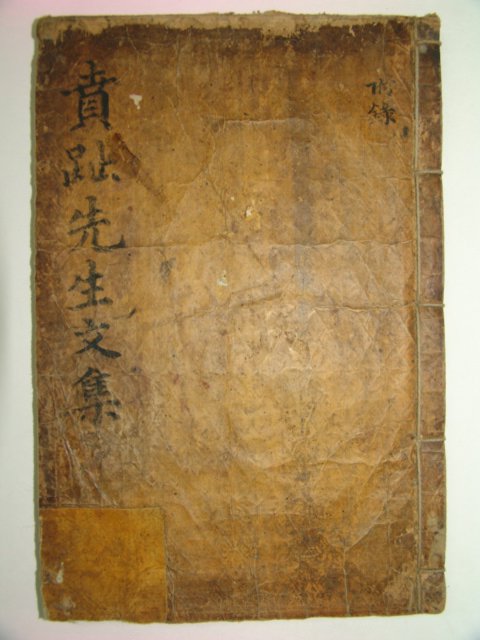 附錄
賁趾先生文集